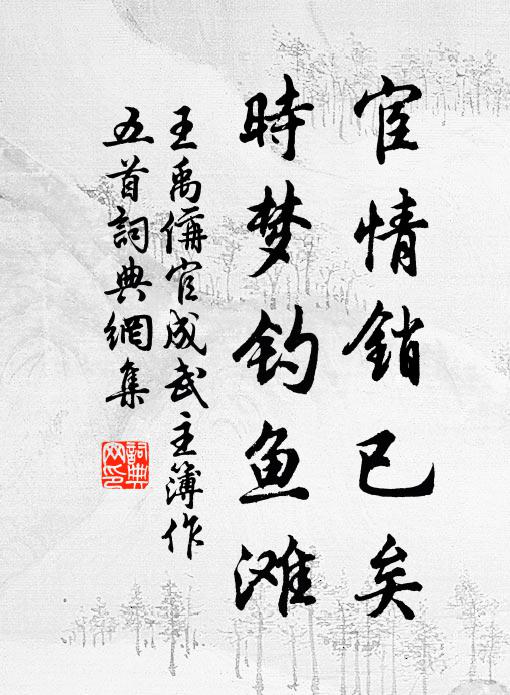 宦情銷已矣
時梦钓鱼滩
王禹偁官成武主簿作
五首詞典網集
詞典
网印